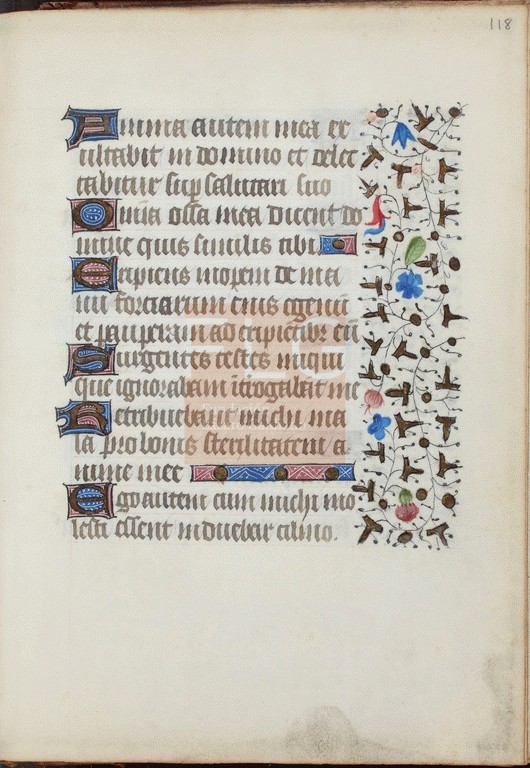 118
Anima autem mea ex
ultabit in domino et delec
tabitur sup salutari suo
Omīa ossa mea dicent do
mine quis similis tibi
Eripiens inopem de ma
nu forciarum eius egenū
et pauperam ad eripietibz eū
Surgentes testes iniqui
que ignorabam īterogabāt me
Retribuebant michi ma
la pro bonis sterilitatem a
nime mee
Ego autem cum michi mo
lesti essent induebar cilino.